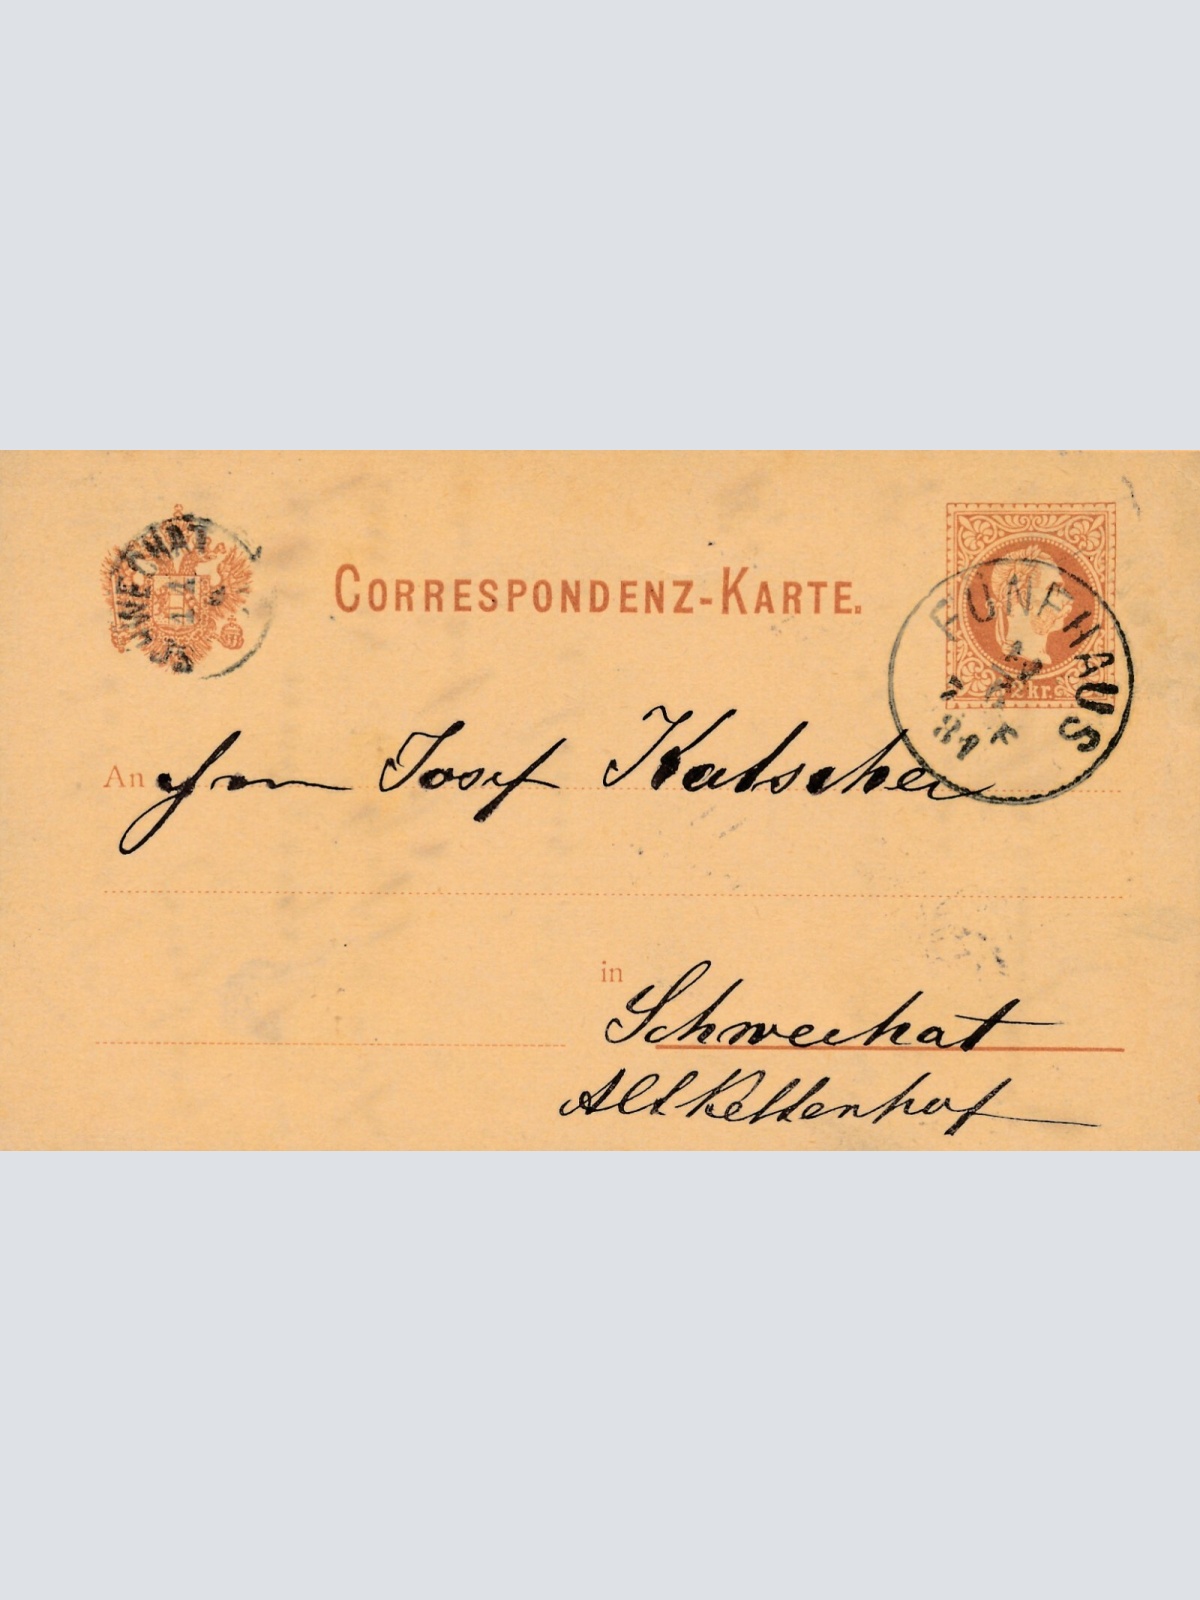 SCHWECHAT
CORRESPONDENZ-KARTE.
FÜNFHAUS
81
2 kr.
An Hrn Josef Katscher
in
Schwechat
Altkettenhof